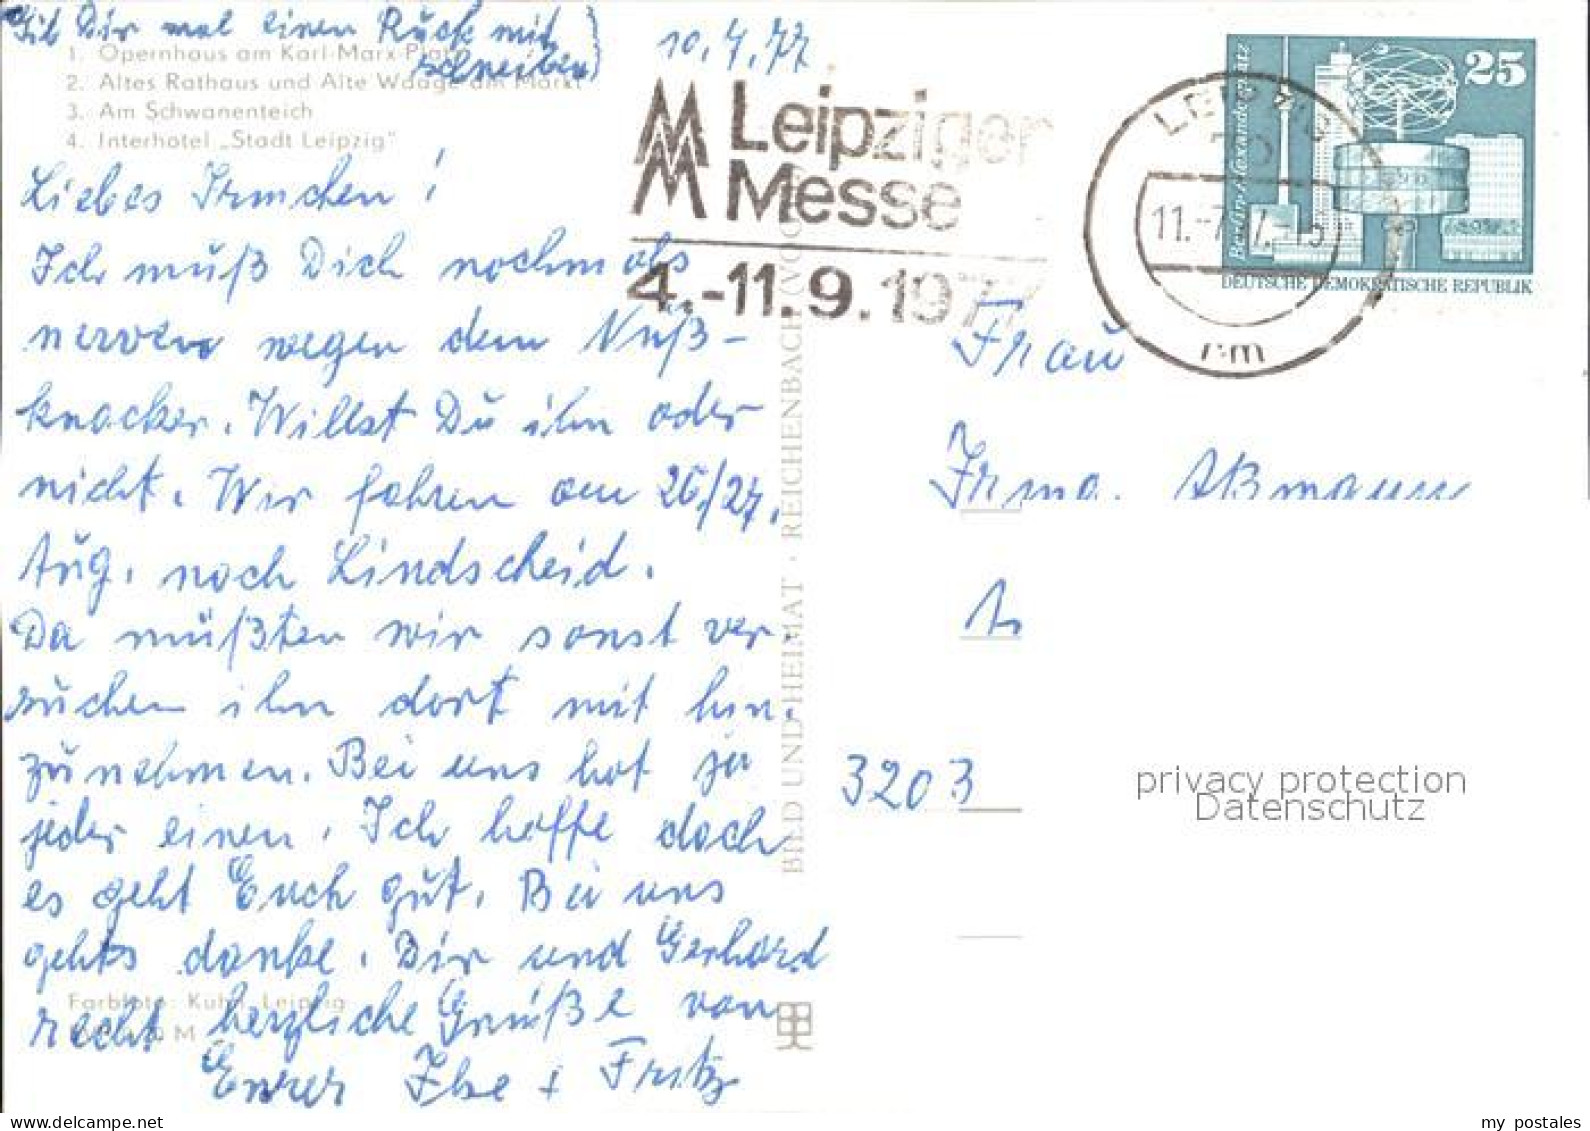 Gib Dir mal einen Ruck mit
schreiben)
1. Opernhaus am Karl-Marx-Platz
2. Altes Rathaus und Alte Waage am Markt
3. Am Schwanenteich
4. Interhotel „Stadt Leipzig"
10.7.77
Liebes Irmchen!
Ich muß Dich nochmals
nerven wegen dem Nuß-
knacker. Willst Du ihn oder
nicht. Wir fahren am 26/27.
Aug. nach Lindscheid.
Da müßten wir sonst ver
suchen ihn dort mit hin
zunehmen. Bei uns hat ja
jeder einen. Ich hoffe doch
es geht Euch gut. Bei uns
gehts danke. Dir und Gerhard
recht herzliche Grüße von
Eurer Ilse + Fritz
Farbfoto: Kuhn, Leipzig
M
BILD UND HEIMAT · REICHENBACH (VOGTL
Leipziger
Messe
4.-11.9.1977
LEIPZIG
70
11.-7.77.-15
nm
25
Berlin-Alexanderplatz
DEUTSCHE DEMOKRATISCHE REPUBLIK
Frau
Irma. Aßmann
3203
privacy protection
Datenschutz
my postales